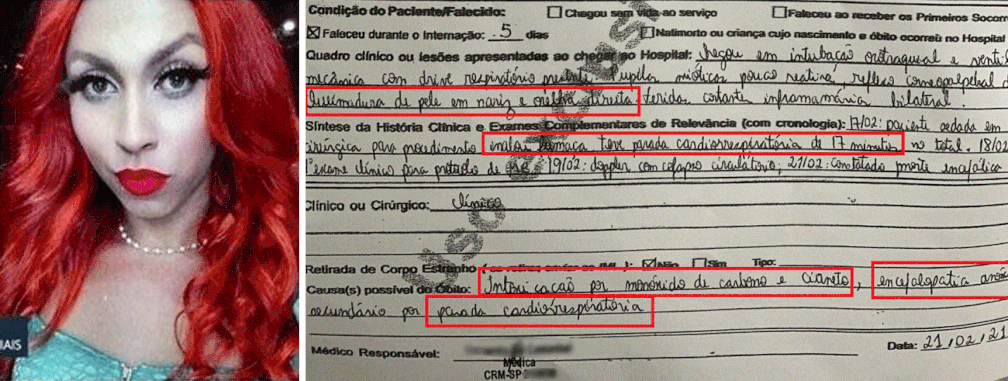 IAIS
Condição do Paciente/Falecido: Chegou sem vida ao serviço Faleceu ao receber os Primeiros Socorr
Faleceu durante o Internação: 5 dias Natimorto ou criança cujo nascimento e óbito ocorreu no Hospital
Quadro clínico ou lesões apresentadas ao chegar ao Hospital: chegou em intubação orotraqueal e venti
mecânica com drive respiratório presente. Pupilas mióticas pouco reativa, reflexo corneopalpebral
Queimadura de pele em nariz e orelha direita. Ferida cortante inframamária bilateral.
Síntese da História Clínica e Exames Complementares de Relevância (com cronologia): 17/02: paciente sedada em
cirúrgica para procedimento teve parada cardiorrespiratória de 17 minutos no total. 18/02
exame clínico para protocolo de 19/02: doppler com colapso circulatório; 21/02: constatado morte encefálica
Clínico ou Cirúrgico: Clínico
Retirada de Corpo Estranho Não Sim Tipo:
Causa(s) possível do Óbito: Intoxicação por monóxido de carbono e cianeto, encefalopatia
secundário por parada cardiorrespiratória
Médico Responsável: Data: 21/02/21
Médica
CRM-SP